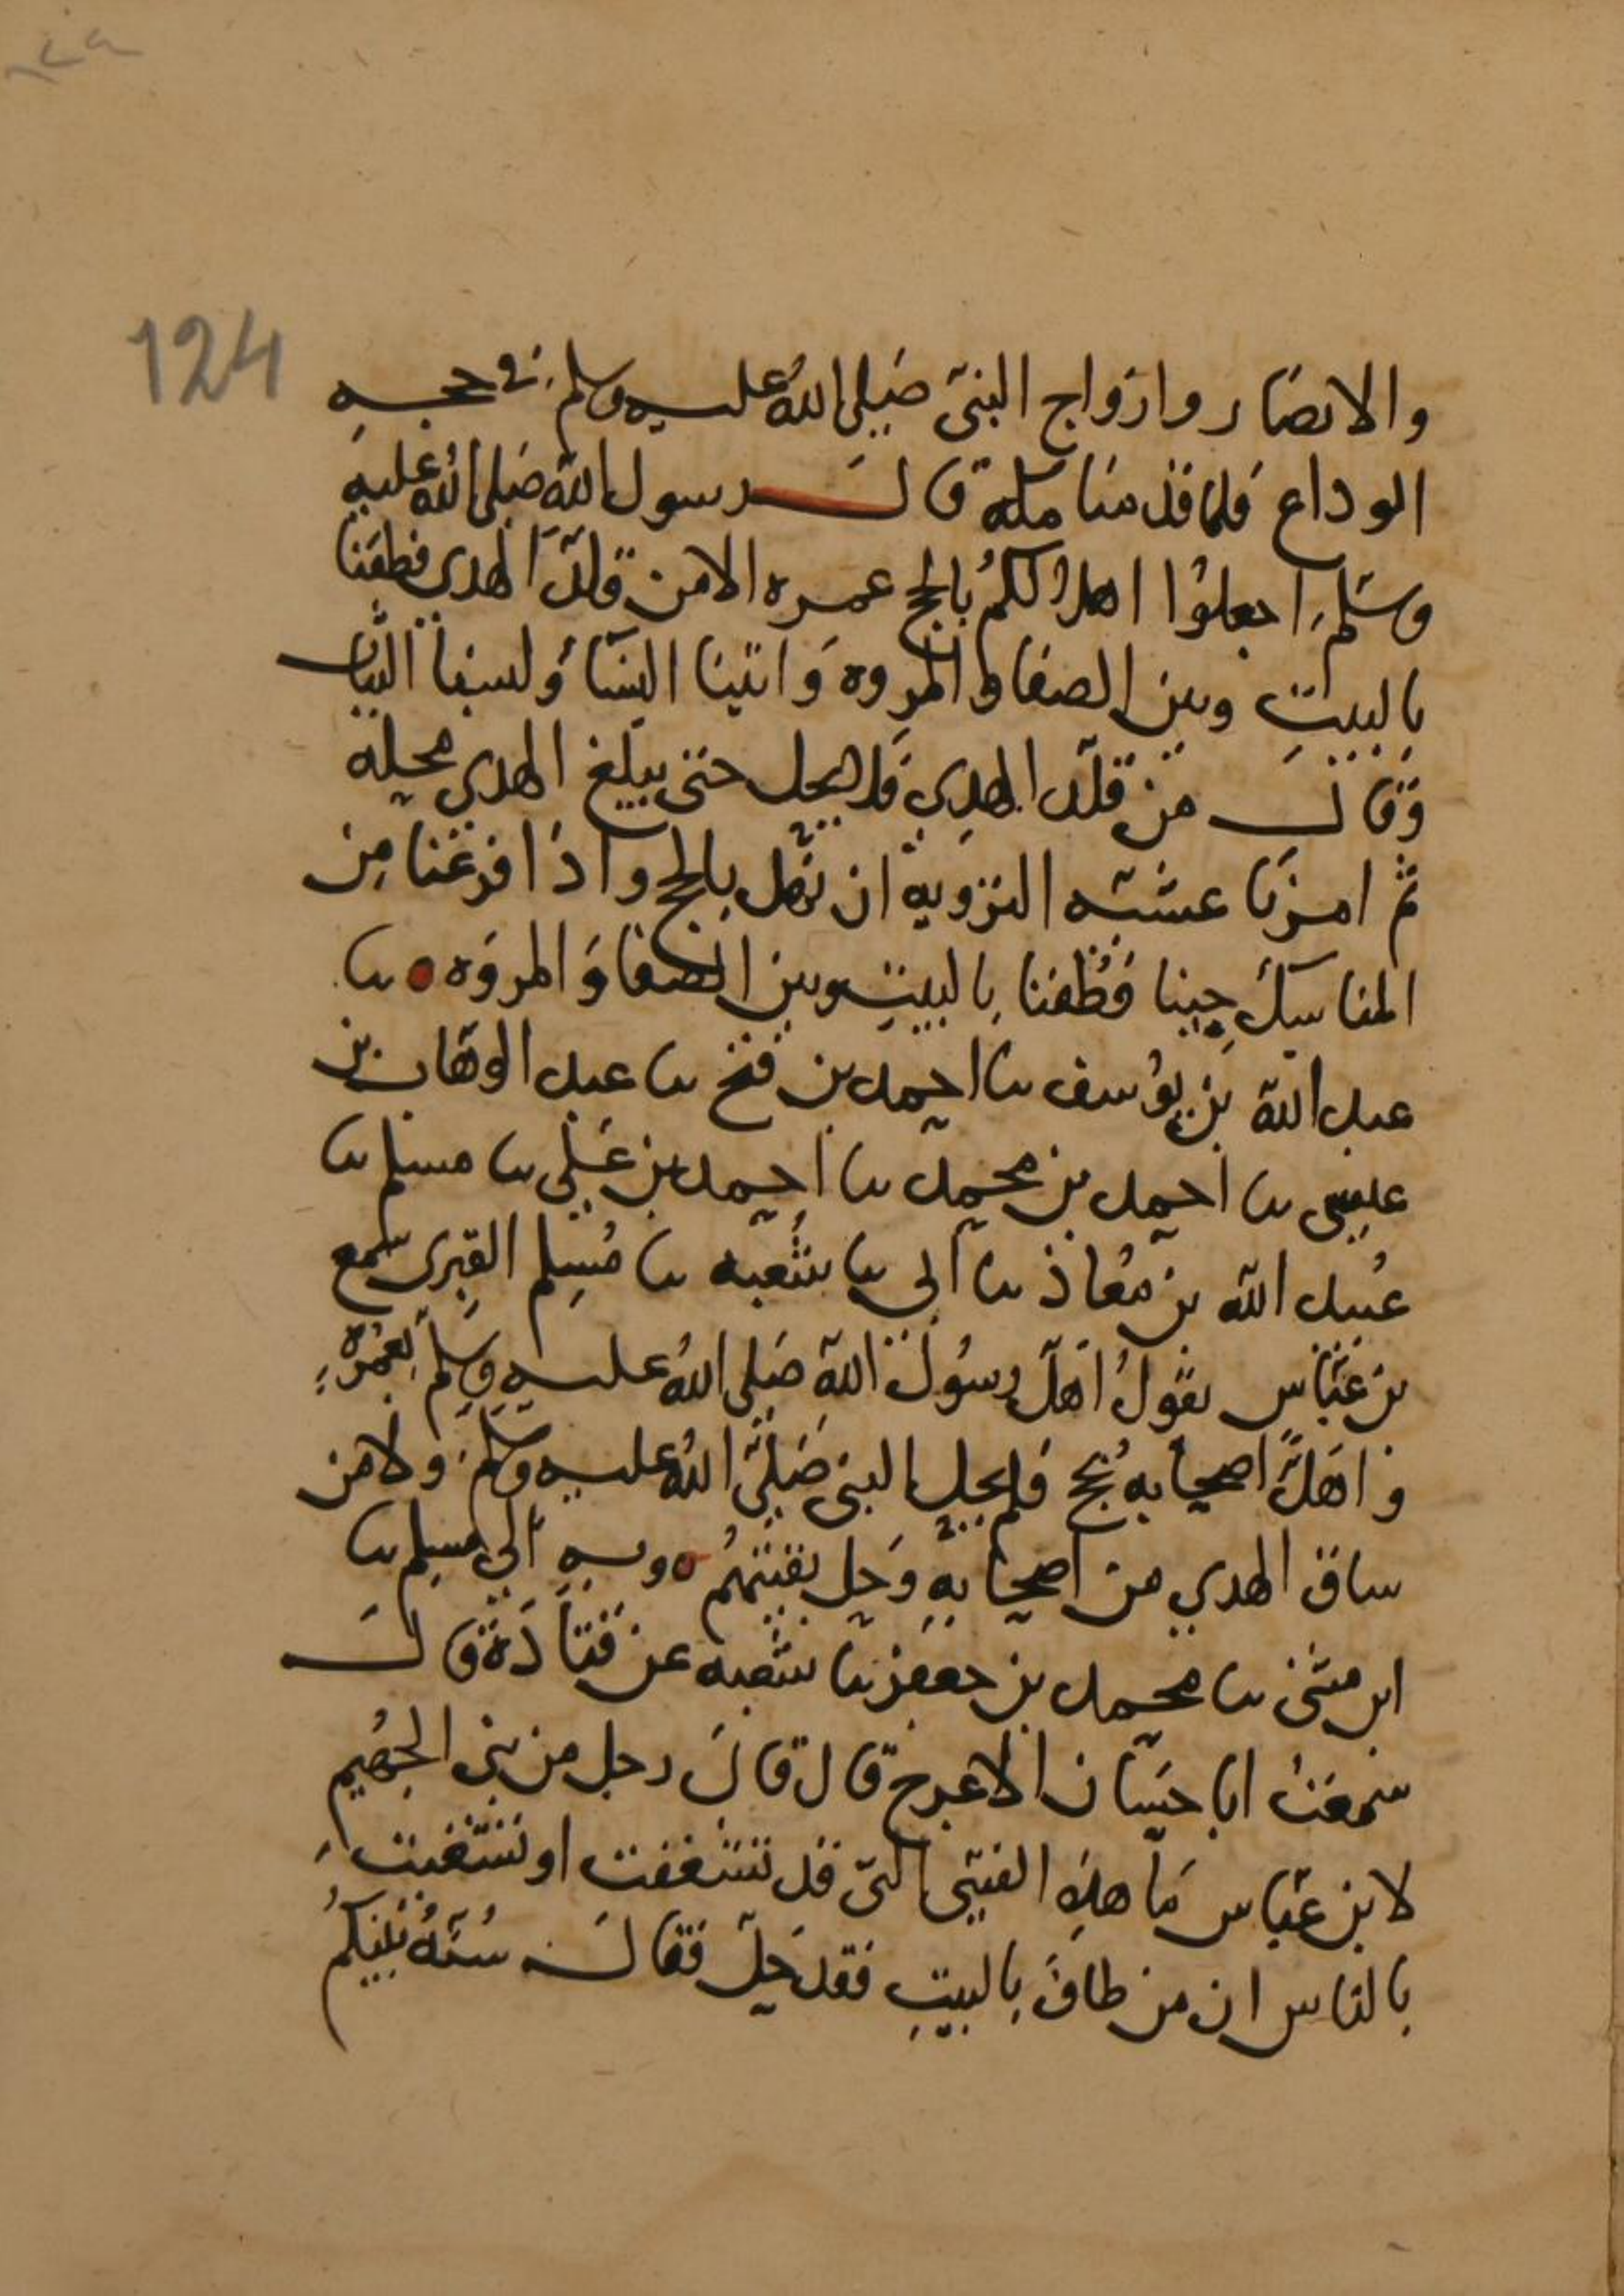 124
والانصار وازواج النبي صلى الله عليه وسلم في حجه
الوداع فلما قدمنا مكة قال رسول الله صلى الله عليه
وسلم اجعلوا اهلالكم بالحج عمره الا من قلد الهدي فطفنا
بالبيت وبين الصفا والمروه واتينا النسا ولبسنا الثياب
وقال من قلد الهدي فلا يحل حتى يبلغ الهدي محله
ثم امرنا عشيه التزويه ان نهل بالحج واذا فرغنا من
المناسك جينا فطفنا بالبيت وبين الصفا والمروه ه نا
عبد الله بن يوسف نا احمد بن فتح نا عبد الوهاب بن
عيسى نا احمد بن محمد نا احمد بن علي نا مسلم نا
عبيد الله بن معاذ نا ابي نا شعبه نا مسلم القري سمع
بن عباس يقول اهل رسول الله صلى الله عليه وسلم بعمرة
واهل اصحابه بحج فلم يحل النبي صلى الله عليه وسلم ولا من
ساق الهدي من اصحابه وحل بقيتهم ه وبه الى مسلم نا
ابن مثنى نا محمد بن جعفر نا شعبه عن قتادة قال
سمعت ابا حسان الاعرج قال قال رجل من بني الجهيم
لابن عباس ما هذه الفتيى التي قد تشغفت او تشغبت
بالناس ان من طاف بالبيت فقد حل فقال سنة نبيكم